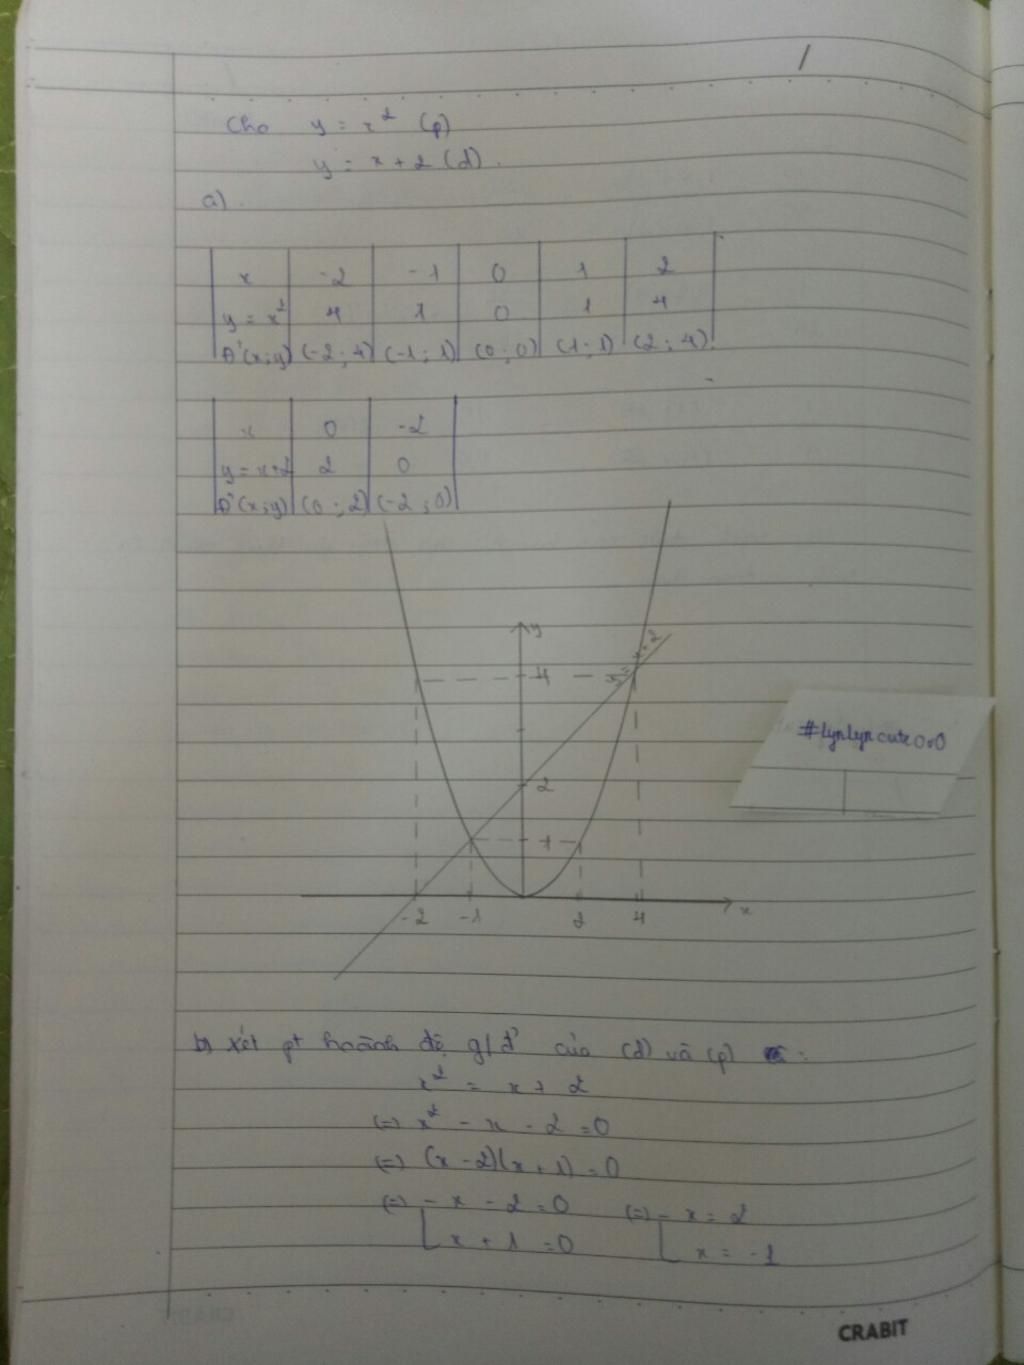 Cho y = x² (p)
y = x + 2 (d).
a)
x -2 -1 0 1 2
y = x² 4 1 0 1 4
Đ'(x;y) (-2;4) (-1;1) (0;0) (1;1) (2;4)
x 0 -2
y = x+2 2 0
Đ'(x;y) (0;2) (-2;0)
y
y = x+2
4
2
1
-2 -1 2 4 x
#lynlyncute0v0
b) xét pt hoành độ g/đ' của (d) và (p) :
x² = x + 2
(=) x² - x - 2 = 0
(=) (x - 2)(x + 1) = 0
(=) [ x - 2 = 0 (=) [ x = 2
x + 1 = 0 x = -1
CRABIT